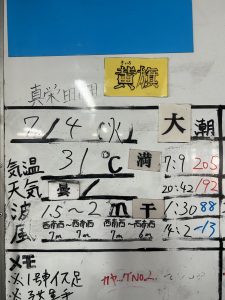 黄旗
真栄田岬
7/4(火) 大潮
気温 31℃ 満 7:9 205
天気 曇 20:42 192
波 1.5~2m 干 1:30 88
風 西南西~西南西~西南西~西南西 14:2 -13
7m 7m 7m 6m
メモ
※1号神イス足